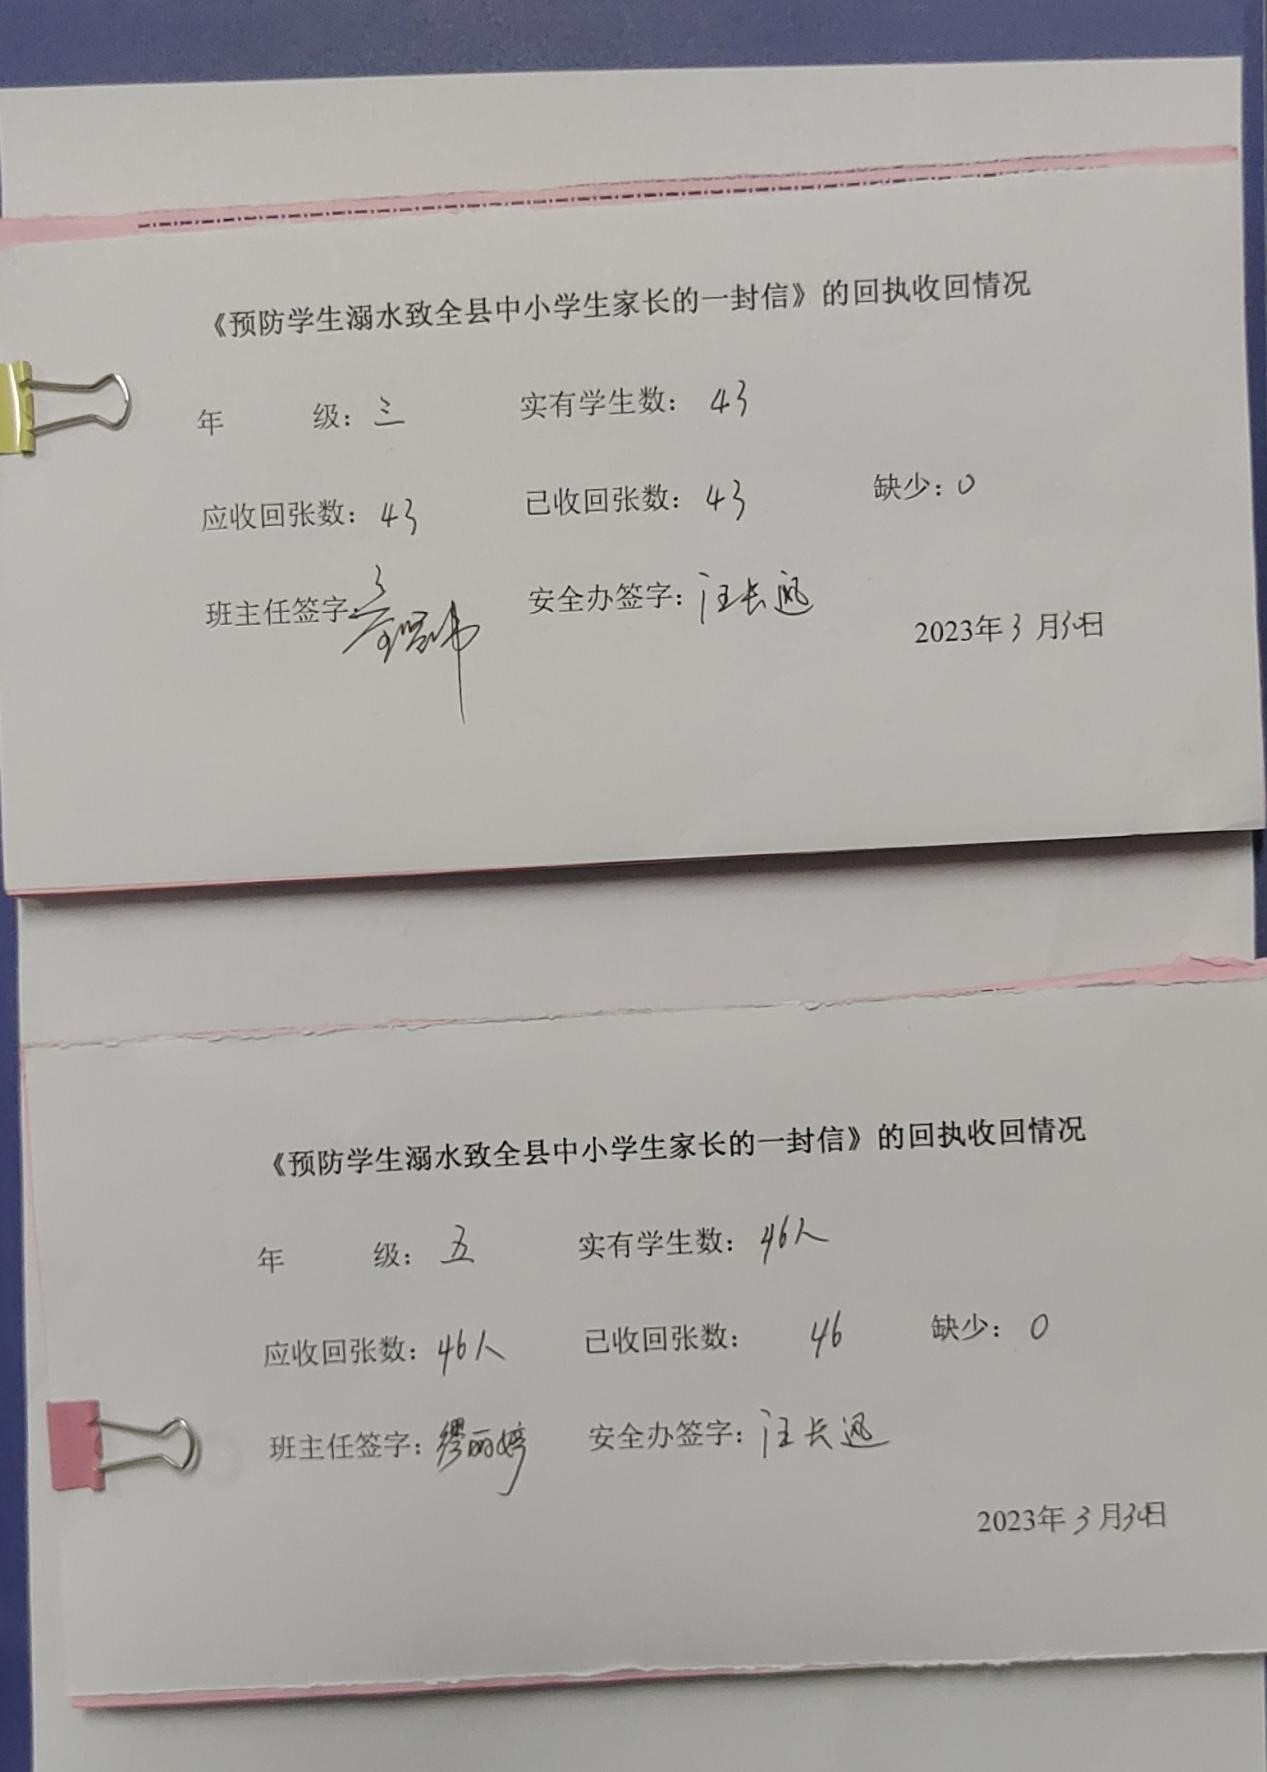 《预防学生溺水致全县中小学生家长的一封信》的回执收回情况
年 级：三 实有学生数：43
应收回张数：43 已收回张数：43 缺少：0
班主任签字： 安全办签字：汪长迅
2023年3月30日
《预防学生溺水致全县中小学生家长的一封信》的回执收回情况
年 级：五 实有学生数：46人
应收回张数：46人 已收回张数：46 缺少：0
班主任签字：缪丽婷 安全办签字：汪长迅
2023年3月30日